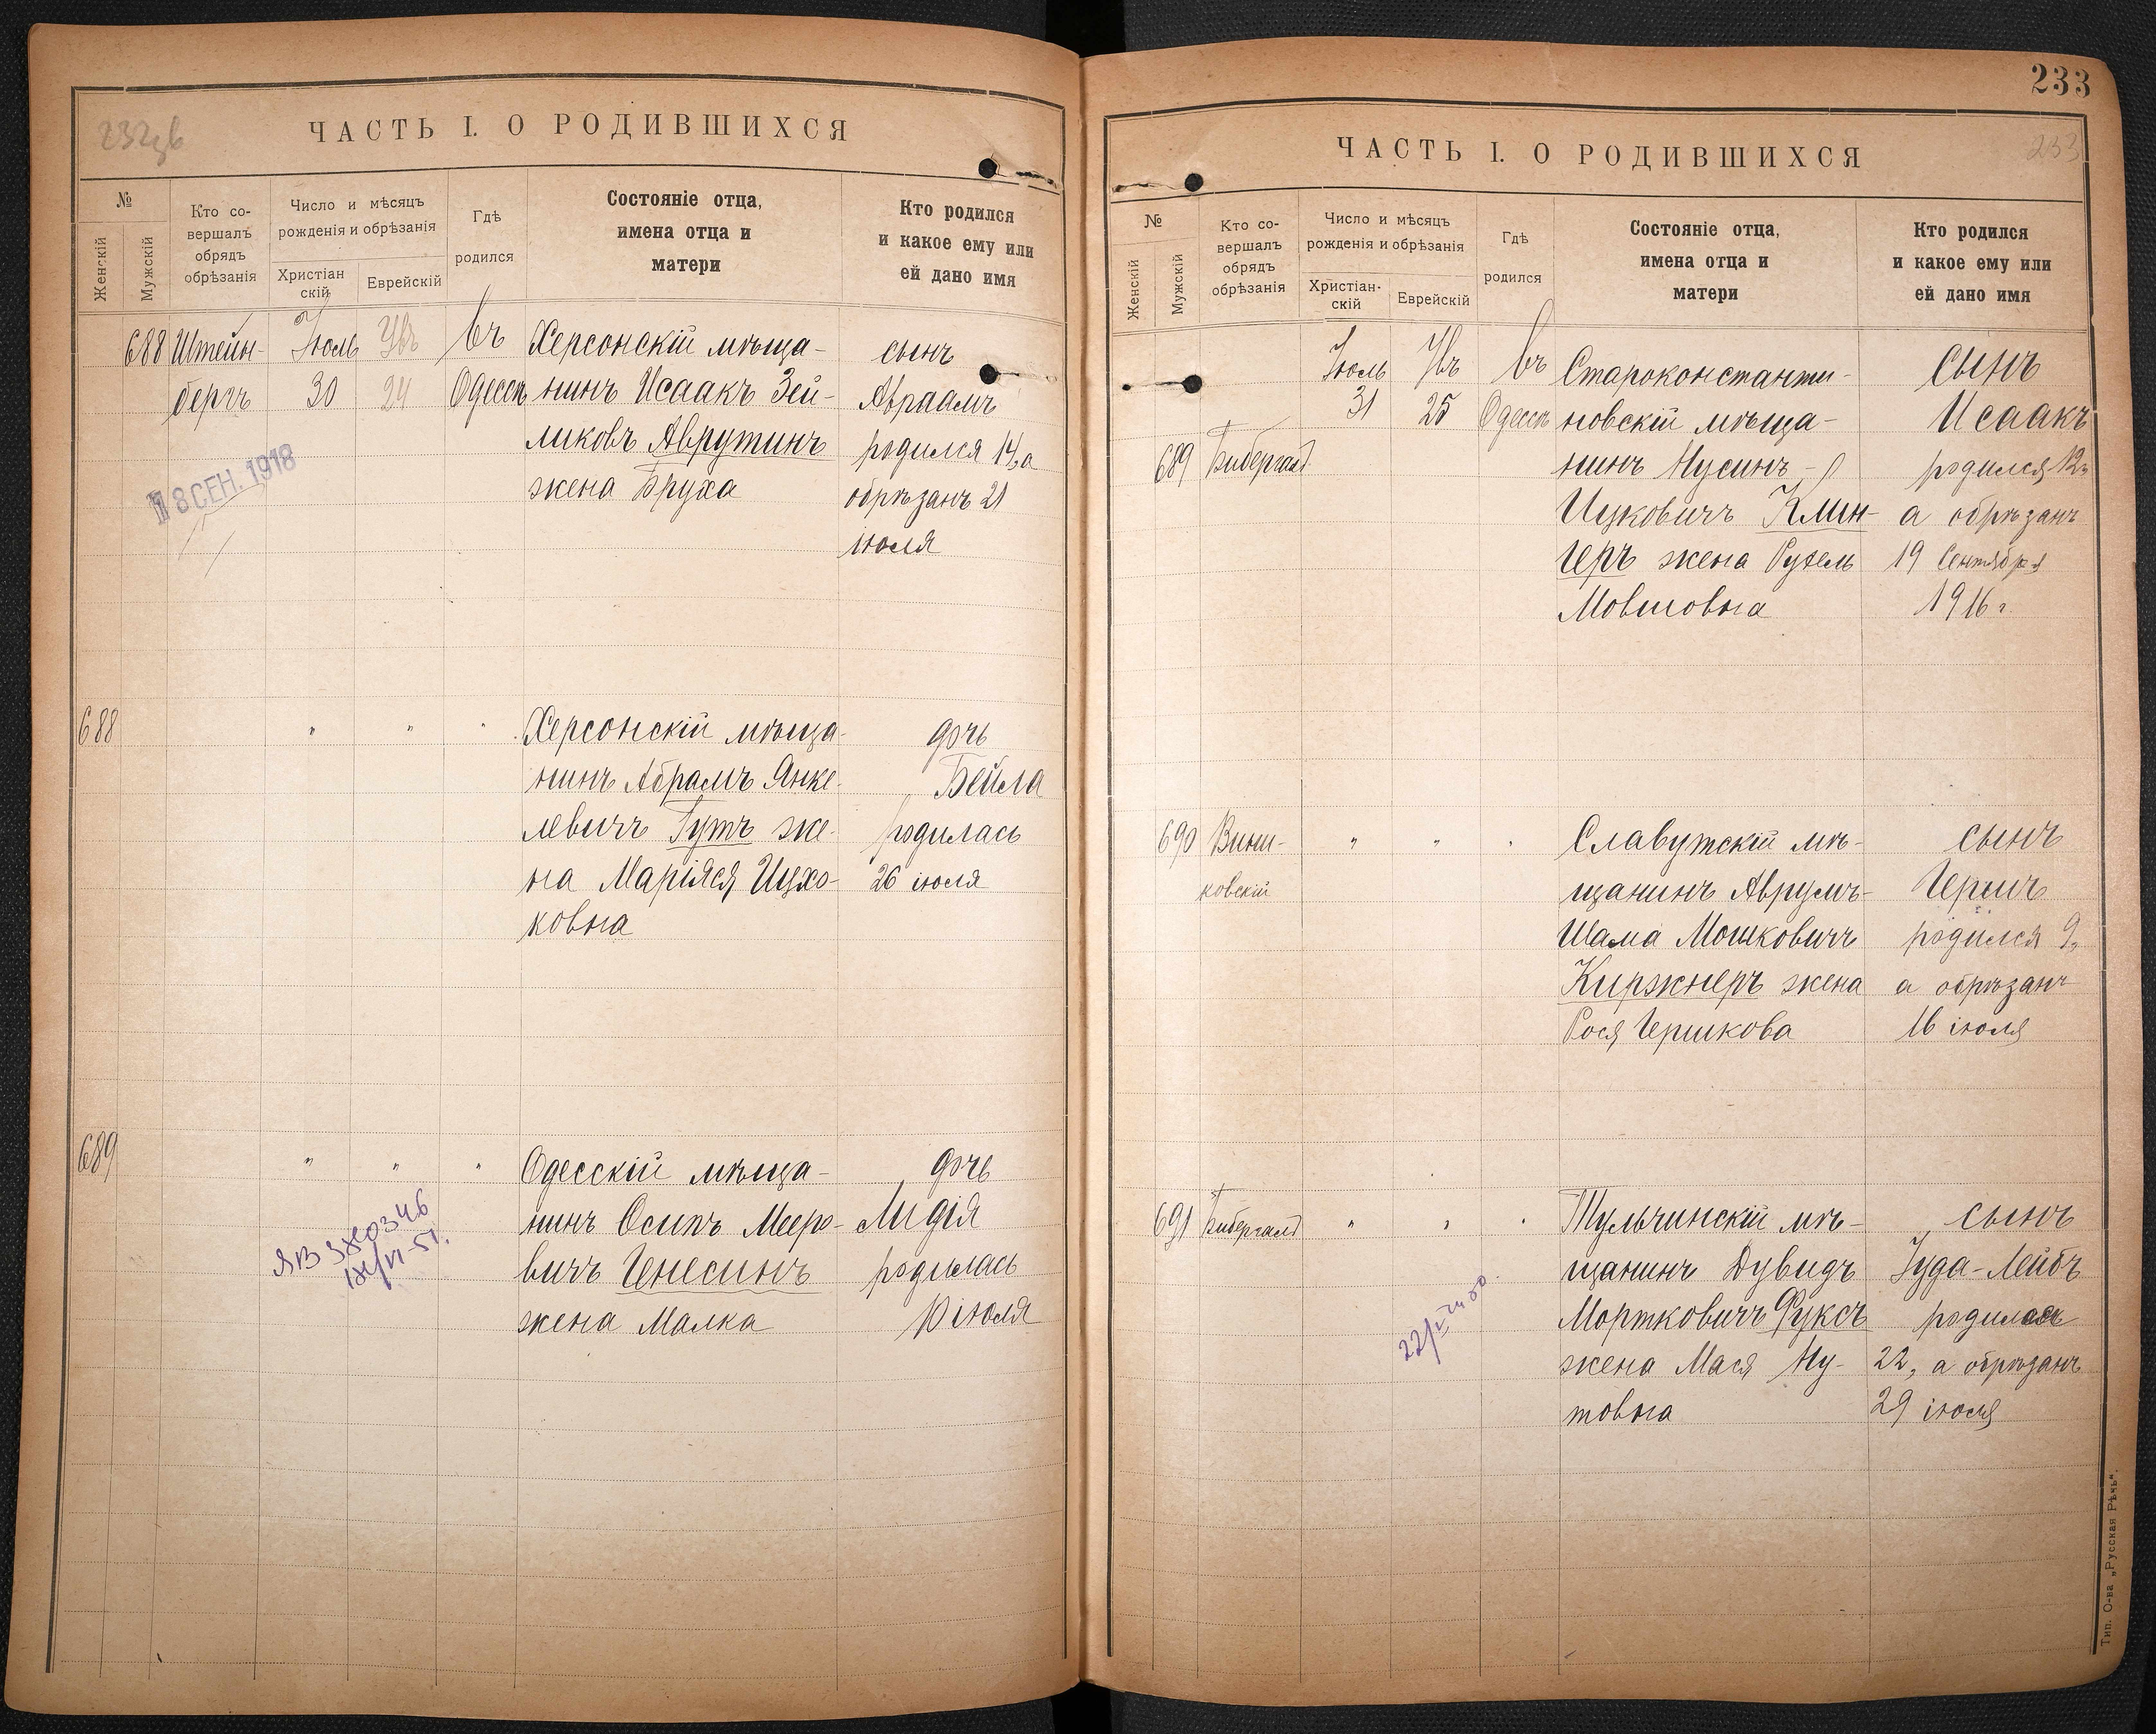 232 об
ЧАСТЬ I. О РОДИВШИХСЯ
№
Женскій
Мужскій
Кто со-
вершалъ
обрядъ
обрѣзанія
Число и мѣсяцъ
рожденія и обрѣзанія
Христіан
скій
Еврейскій
Гдѣ
родился
Состояніе отца,
имена отца и
матери
Кто родился
и какое ему или
ей дано имя
688 Штейн-
бергъ
Іюль
30
24
Въ
Одессѣ
Херсонскій мѣща-
нинъ Исаакъ Зей-
ликовъ Аврутинъ
жена Бруха
сынъ
Авраамъ
родился 14, а
обрѣзанъ 21
іюля
18 СЕН. 1918
688
" " "
Херсонскій мѣща-
нинъ Абрамъ Янке-
левичъ Гутъ же-
на Маріяся Ицхо-
ковна
дочь
Бейла
родилась
26 іюля
689
" " "
Одесскій мѣща-
нинъ Осипъ Мееро-
вичъ Генесинъ
жена Малка
дочь
Лидія
родилась
10 іюля
233
ЧАСТЬ I. О РОДИВШИХСЯ
233
№
Женскій
Мужскій
Кто со-
вершалъ
обрядъ
обрѣзанія
Число и мѣсяцъ
рожденія и обрѣзанія
Христіан-
скій
Еврейскій
Гдѣ
родился
Состояніе отца,
имена отца и
матери
Кто родился
и какое ему или
ей дано имя
689 Бибергалъ
Іюль
31
25
Въ
Одессѣ
Староконстанти-
новскій мѣща-
нинъ Нусинъ-
Ицковичъ Клин-
геръ жена Рухель
Мовшовна
сынъ
Исаакъ
родился 12,
а обрѣзанъ
19 Сентября
1916 г.
690 Вини-
ковскій
" " "
Славутскій мѣ-
щанинъ Аврумъ-
Шама Мошковичъ
Киржнеръ жена
Рося Гершкова
сынъ
Гершъ
родился 9,
а обрѣзанъ
16 іюля
691 Бибергалъ
" " "
Тульчинскій мѣ-
щанинъ Дувидъ
Мортковичъ Фуксъ
жена Мася Ну-
товна
сынъ
Іуда-Лейбъ
родилась
22, а обрѣзанъ
29 іюля
Тип. О-ва „Русская Рѣчь".